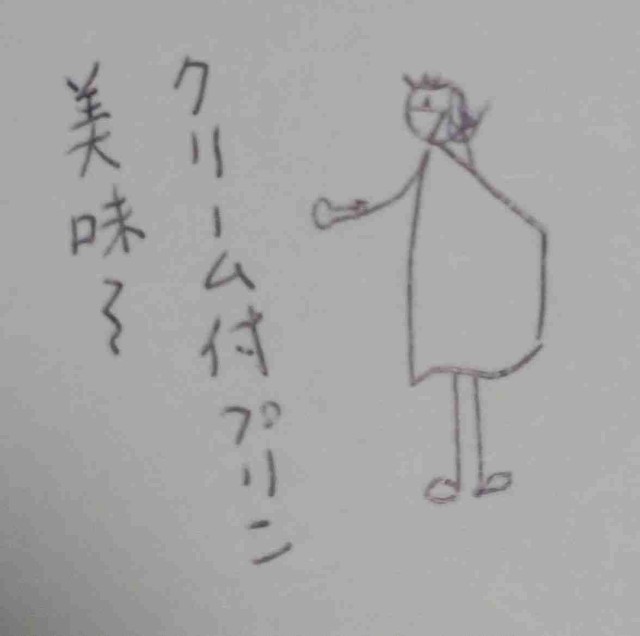 クリーム付プリン
美味〜